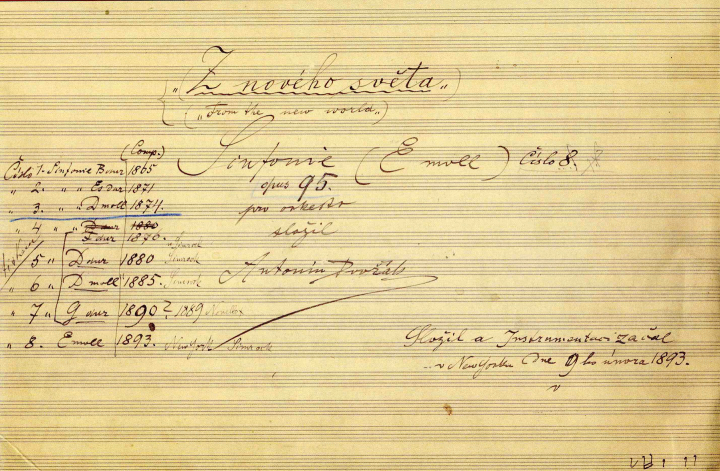 „Z nového světa„
(„From the new world„)
Sinfonie (E moll) Číslo 8.
opus 95.
pro orkestr
složil
Antonín Dvořák
(Comp.)
Číslo 1. Sinfonie B dur 1865
„ 2. „ „ Es dur 1871
„ 3. „ „ D moll 1874.
„ 4 „ D dur 1880
F dur 1870.
5 „ D dur 1880 Simrock
„ 6 „ D moll 1885. Simrock
„ 7 „ G dur 1890? 1889 Novello
„ 8. E moll 1893. New York Simrock
Složil a Instrumentaci začal
v New Yorku dne 9ho února 1893.